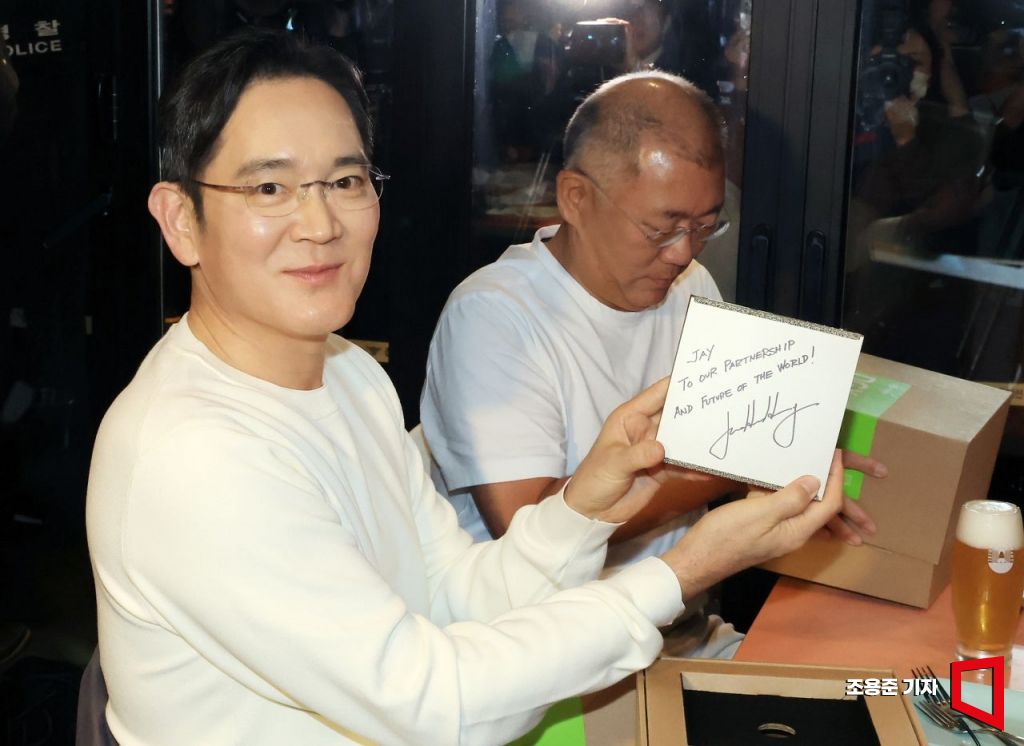 경찰
POLICE
JAY
TO OUR PARTNERSHIP
AND FUTURE OF THE WORLD!
조용준 기자